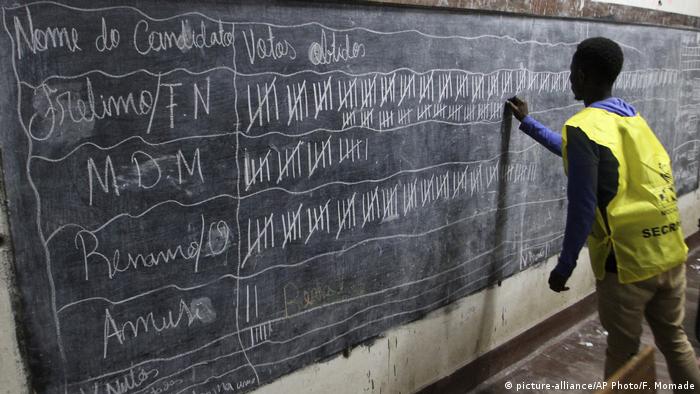 Nome do Candidato Votos obtidos
Frelimo/F.N
M.D.M
Renamo/O
Amusi
V. Nulos
SECR
© picture-alliance/AP Photo/F. Momade